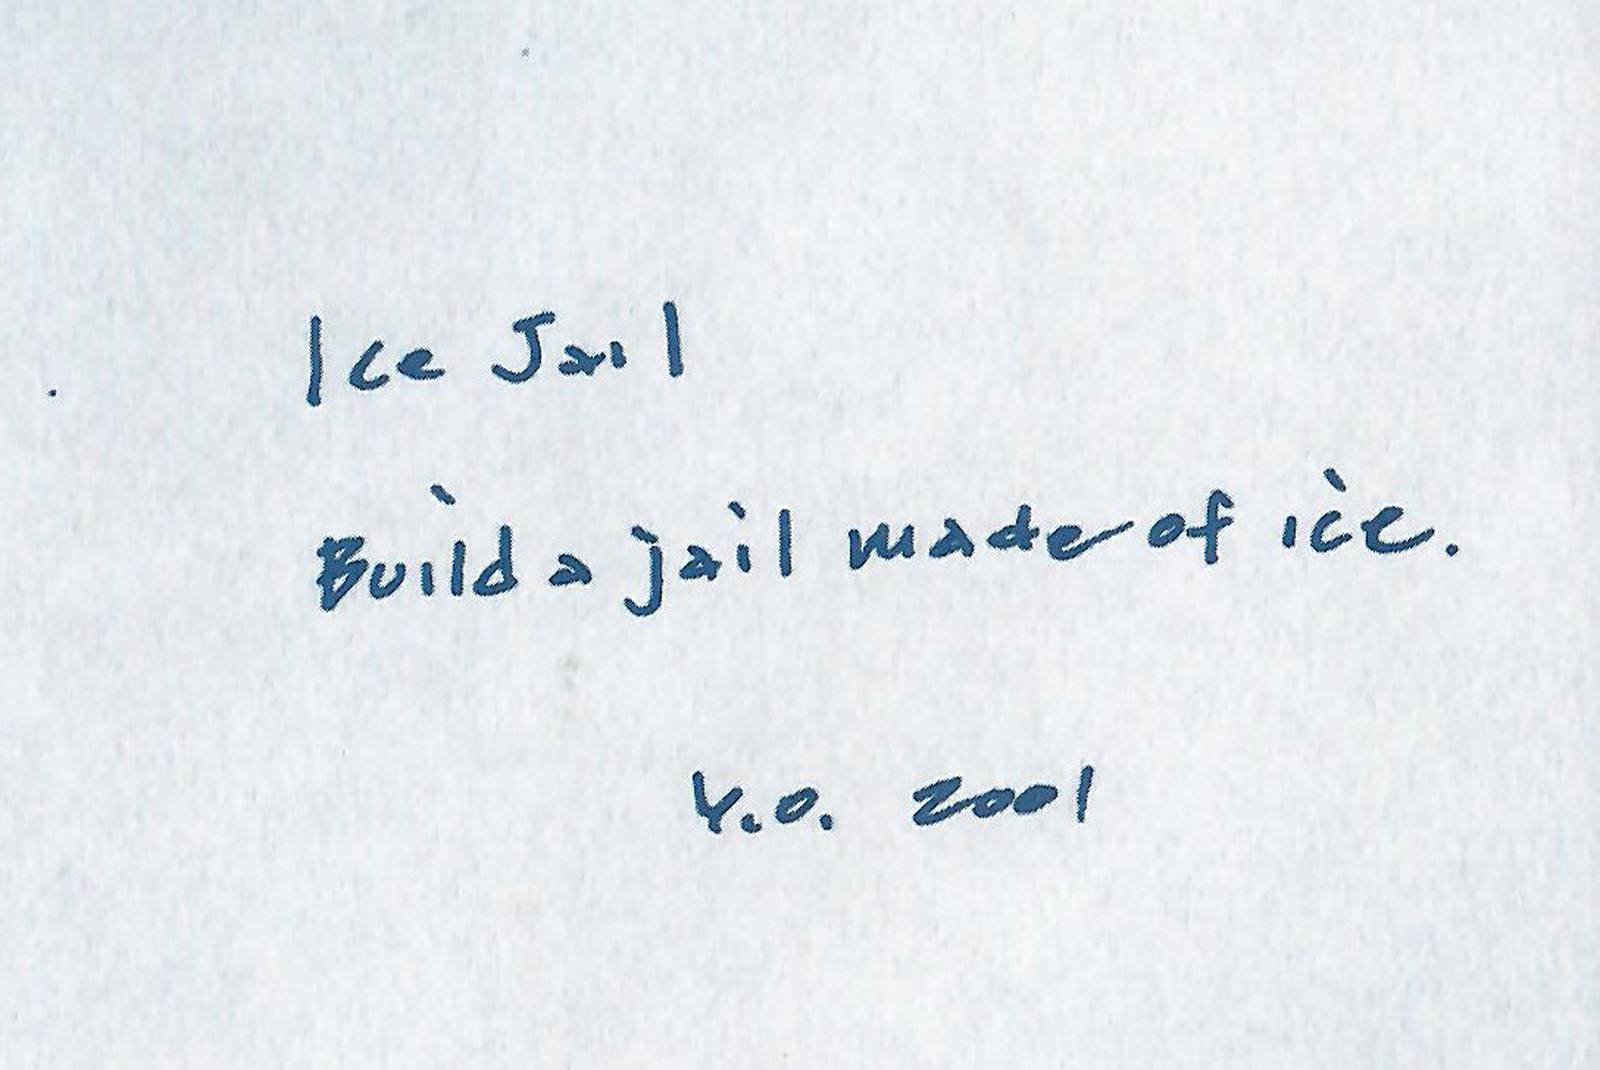 Ice Jail
Build a jail made of ice.
Y.O. 2001